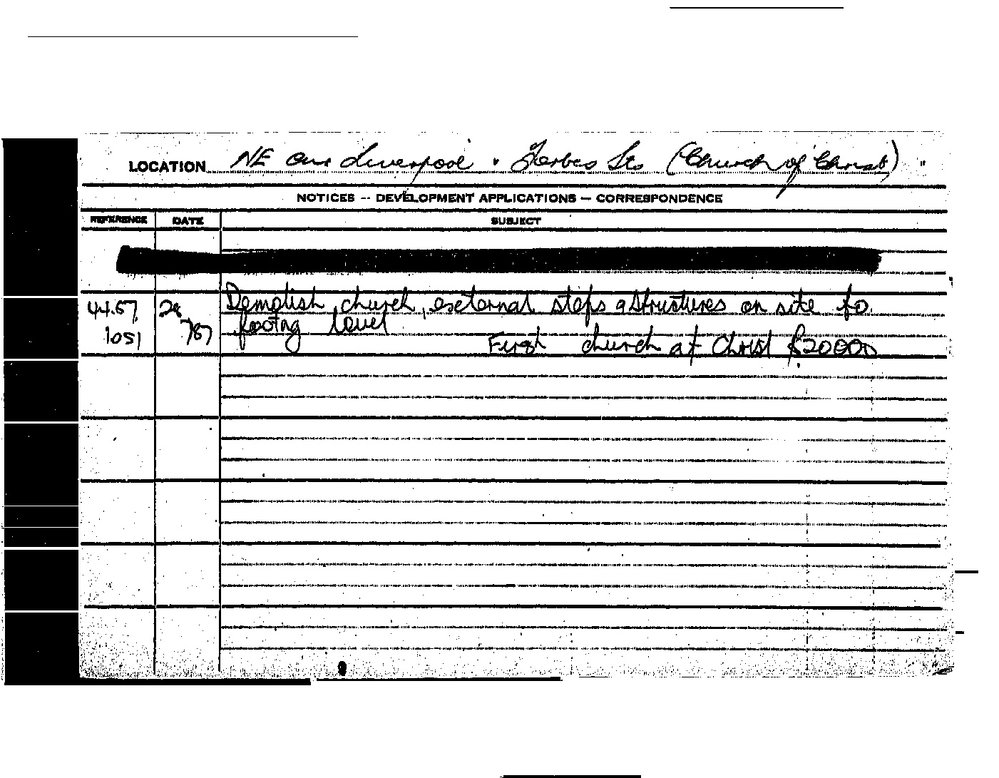 LOCATION NE Cnr Liverpool & Forbes Sts (Church of Christ)
NOTICES -- DEVELOPMENT APPLICATIONS — CORRESPONDENCE
REFERENCE DATE SUBJECT
44.67 28 Demolish church, external steps & structures on site to
1051 7/87 footing level
First church at Christ $20000